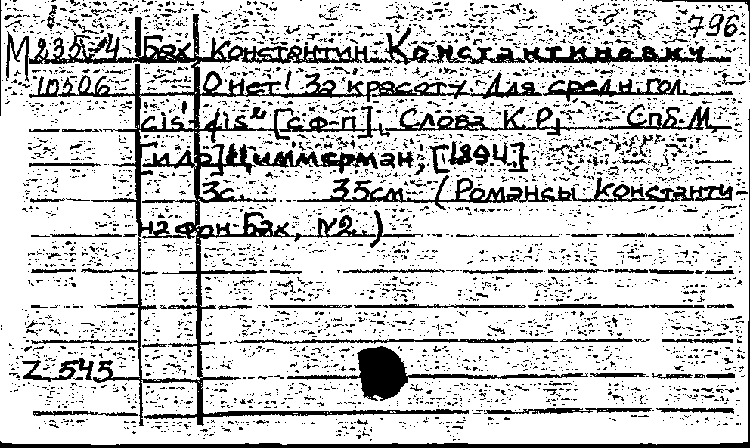 796
М 235/4 Бах Константин Константинович
10506 О нет! За красоту. Для средн. гол.
cis'-fis" [с ф-п], Слова К. Р. СПб. М.
[и др.] Циммерман, [1894]
3с. 35см. (Романсы Константи-
на фон-Бах, №2.)
Z 545